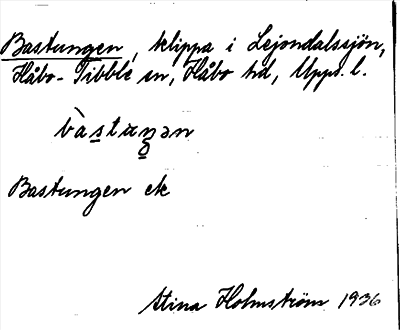 Bastungen, klippa i Lejondalssjön,
Håbo-Tibble sn, Håbo hd, Upps. l.
bàstuŋən
Bastungen ek
Stina Holmström 1936